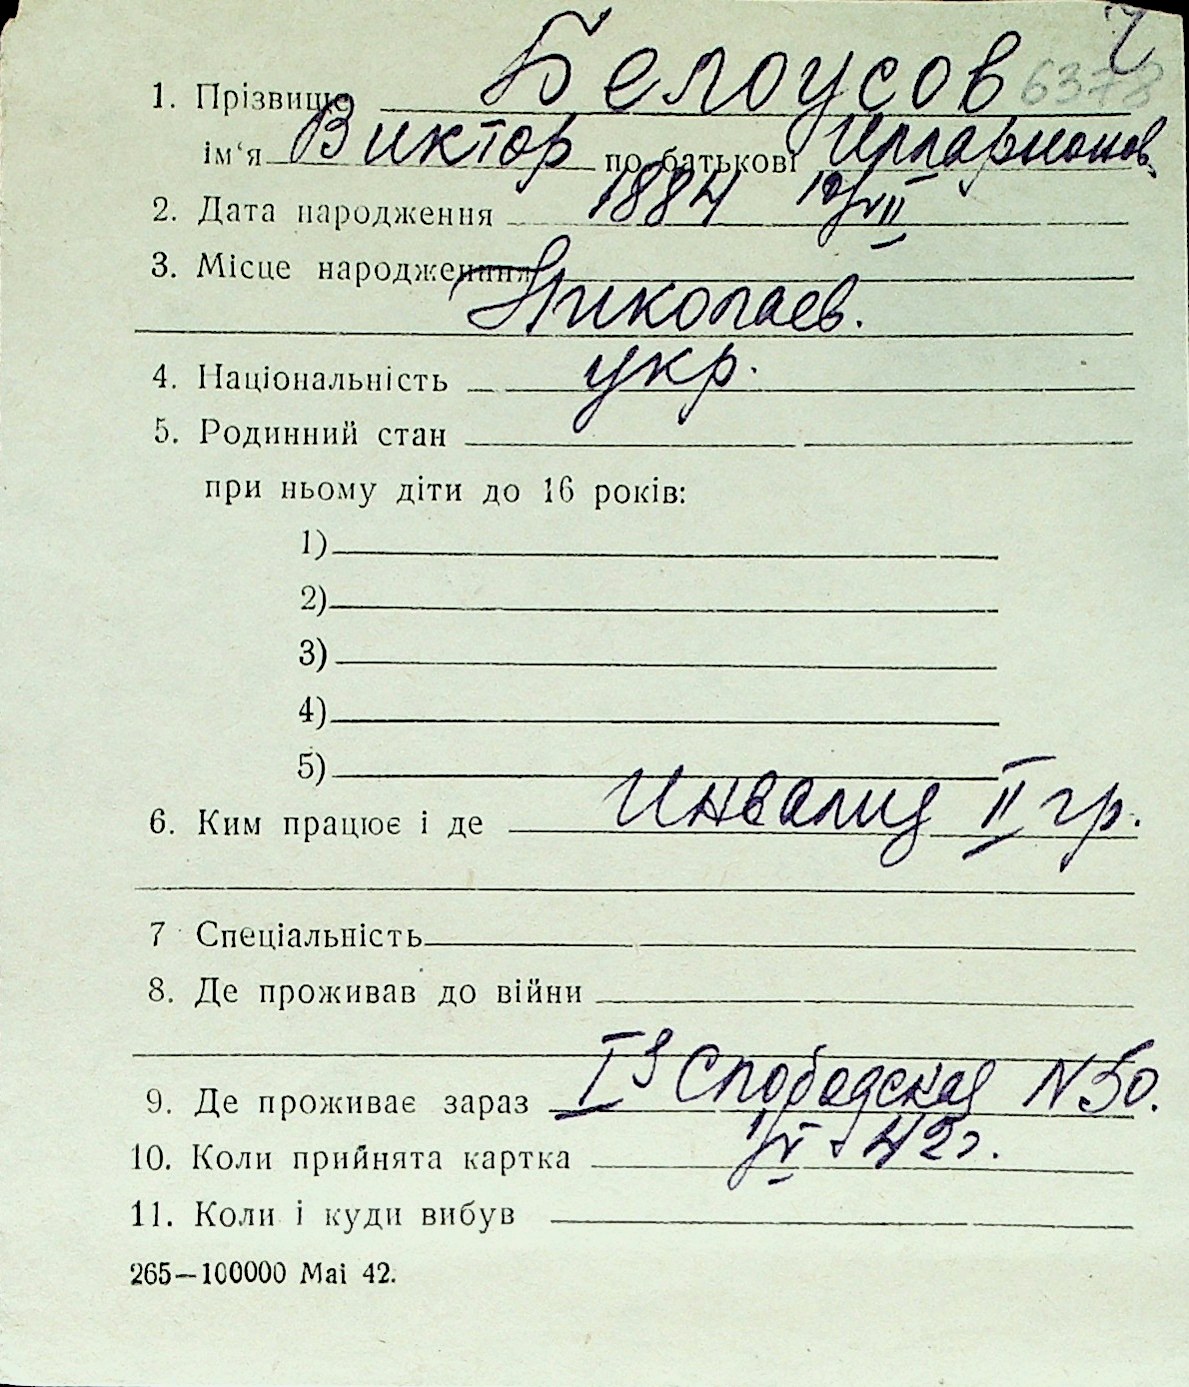 Ч
1. Прізвище Белоусов 6378
ім‘я Виктор по батькові Илларионов.
2. Дата народження 1884 12/VII
3. Місце народження Николаев.
4. Національність укр.
5. Родинний стан
при ньому діти до 16 років:
1)
2)
3)
4)
5)
6. Ким працює і де Инвалид II гр.
7 Спеціальність
8. Де проживав до війни
9. Де проживає зараз I Слободская N 50.
10. Коли прийнята картка 1/V 42г.
11. Коли і куди вибув
265—100000 Mai 42.